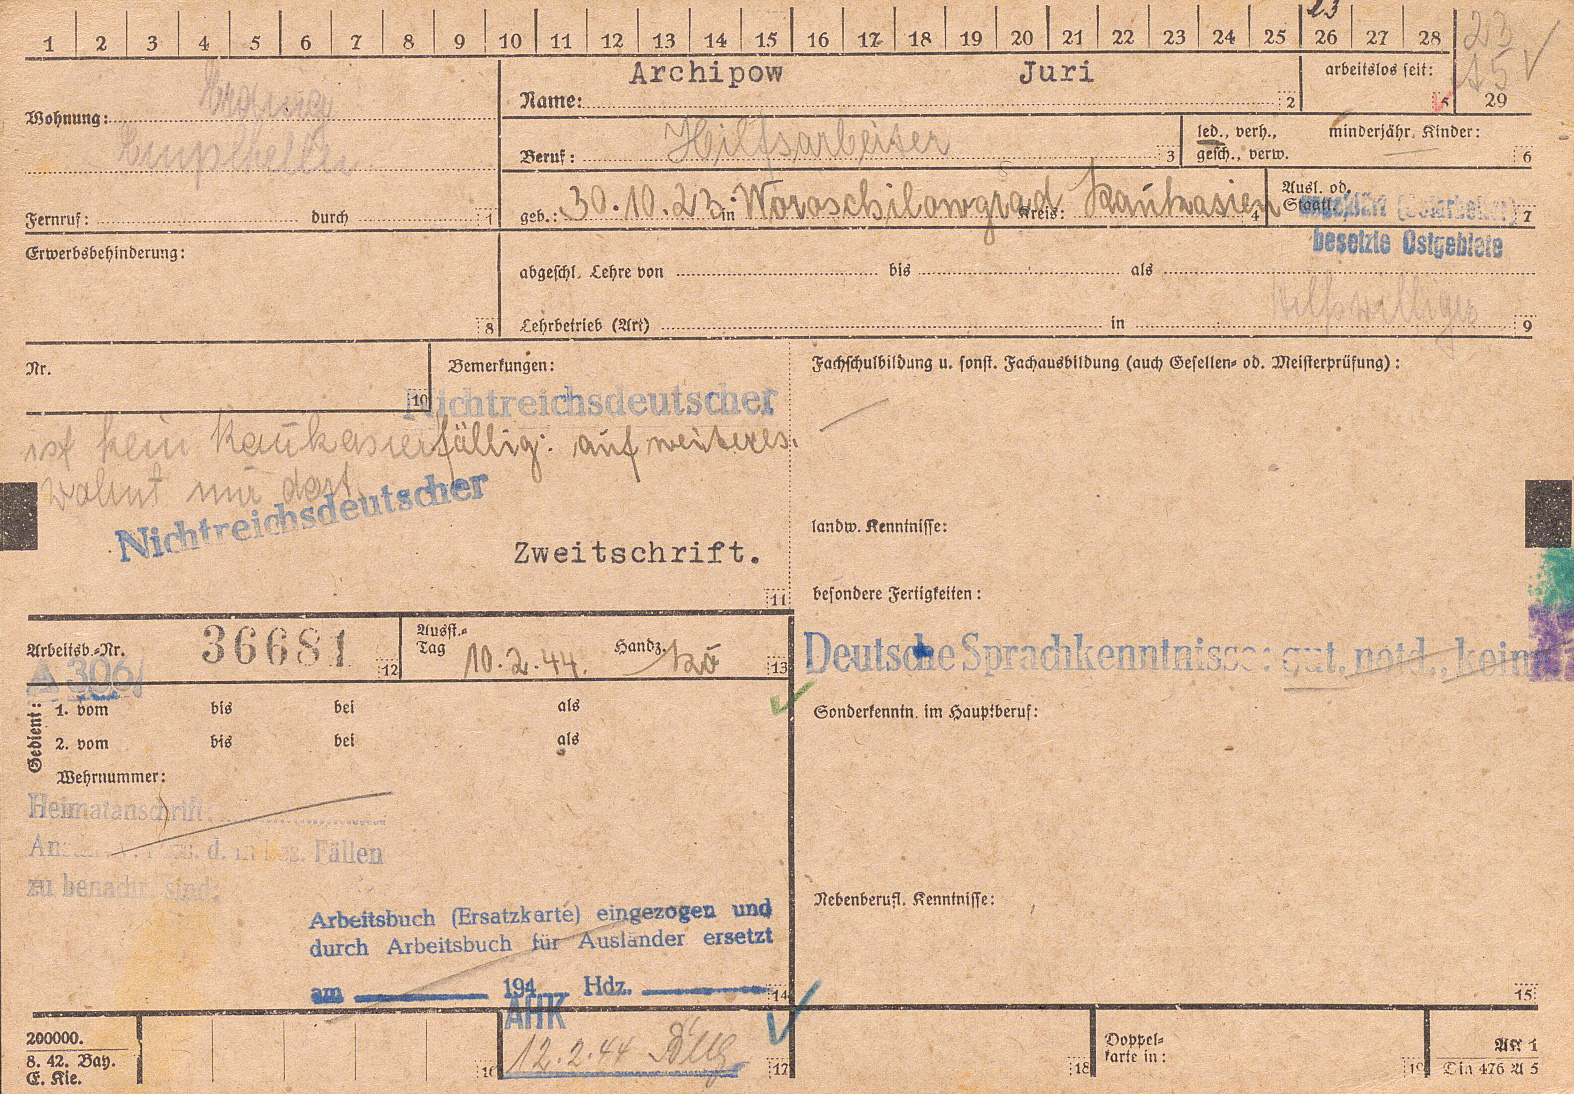 1 2 3 4 5 6 7 8 9 10 11 12 13 14 15 16 17 18 19 20 21 22 23 24 25 26 27 28
23
23
15
Archipow Juri
Name: 2
arbeitslos seit: 5 29
Wohnung: Erding
Beruf: Hilfsarbeiter 3
led., verh., gesch., verw.
minderjähr. Kinder: 6
Fernruf: durch 1
geb.: 30.10.23 in Woroschilowgrad Kreis: Kaukasien 4
Ausl. od. Staatl. 7
ungeklärt (Ostarbeiter)
besetzte Ostgebiete
Erwerbsbehinderung: 8
abgeschl. Lehre von bis als
Hilfswilliger
Lehrbetrieb (Art) in 9
Nr. 10
Bemerkungen:
Nichtreichsdeutscher
ist kein Kaukasier fällig: auf weiteres.
wohnt nur dort
Nichtreichsdeutscher
Zweitschrift.
11
Fachschulbildung u. sonst. Fachausbildung (auch Gesellen- od. Meisterprüfung):
landw. Kenntnisse:
besondere Fertigkeiten:
Deutsche Sprachkenntnisse: gut, notd., kein
Sonderkenntn. im Hauptberuf:
Nebenberufl. Kenntnisse:
15
Arbeitsb.-Nr. 36681 12
A 306/
Ausst.-Tag 10.2.44. Handz. 13
Gedient: 1. vom bis bei als
2. vom bis bei als
Wehrnummer:
Heimatanschrift:
d. in bes. Fällen
zu benachr. sind:
Arbeitsbuch (Ersatzkarte) eingezogen und
durch Arbeitsbuch für Ausländer ersetzt
am 194 Hdz. 14
AHK
12.2.44
200000.
8. 42. Bay.
E. Kie.
16 17 18
Doppel-
karte in: 19
Art 1
Din 476 A 5